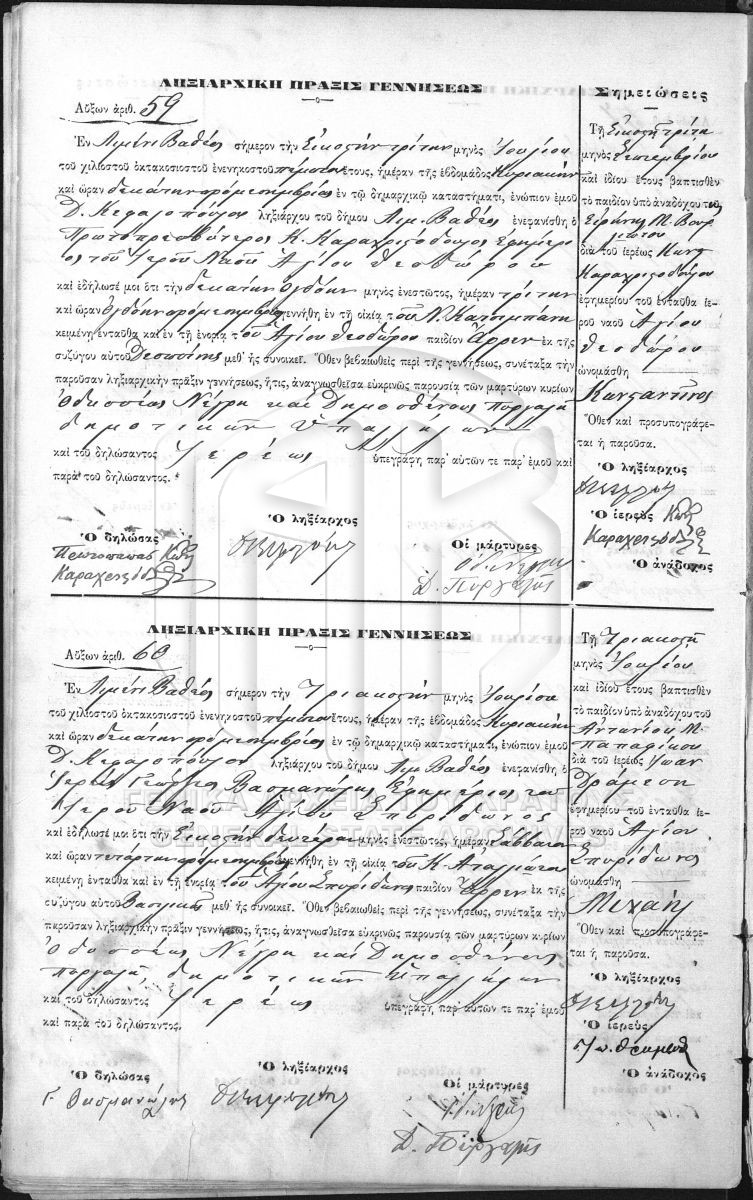 ΛΗΞΙΑΡΧΙΚΗ ΠΡΑΞΙΣ ΓΕΝΝΗΣΕΩΣ
Αὔξων ἀριθ. 59
Ἐν Λιμένι Βαθέος σήμερον τὴν Εἰκοστὴν τρίτην μηνὸς Ἰουλίου
τοῦ χιλιοστοῦ ὀκτακοσιοστοῦ ἐνενηκοστοῦ πέμπτου ἔτους, ἡμέραν τῆς ἑβδομάδος Κυριακὴν
καὶ ὥραν δεκάτην πρὸ μεσημβρίας ἐν τῷ δημαρχικῷ καταστήματι, ἐνώπιον ἐμοῦ
Δ. Κεφαλοπούλου ληξιάρχου τοῦ δήμου Λιμ. Βαθέος ἐνεφανίσθη ὁ
Πρωτοπρεσβύτερος Κ. Καραχριστόδουλος Ἐφημέρι
ος τοῦ Ἱεροῦ Ναοῦ Ἁγίου Θεοδώρου
καὶ ἐδήλωσέ μοι ὅτι τὴν δεκάτην ὀγδόην μηνὸς ἐνεστῶτος, ἡμέραν τρίτην
καὶ ὥραν ὀγδόην πρὸ μεσημβρίας ἐγεννήθη ἐν τῇ οἰκίᾳ τοῦ Ν. Κατσιμπάνη
κειμένῃ ἐνταῦθα καὶ ἐν τῇ ἐνορίᾳ τοῦ Ἁγίου Θεοδώρου παιδίον Ἄρρεν ἐκ τῆς
συζύγου αὐτοῦ Δεσποίνης μεθ᾽ ἧς συνοικεῖ. Ὅθεν βεβαιωθεὶς περὶ τῆς γεννήσεως, συνέταξα τὴν
παροῦσαν ληξιαρχικὴν πρᾶξιν γεννήσεως, ἥτις, ἀναγνωσθεῖσα εὐκρινῶς παρουσίᾳ τῶν μαρτύρων κυρίων
Ὀδυσσέως Νέγρη καὶ Δημοσθένους Πυργαλῆ
δημοτικῶν ὑπαλλήλων
καὶ τοῦ δηλώσαντος Ἱερέως ὑπεγράφη παρ᾽ αὐτῶν τε παρ᾽ ἐμοῦ καὶ
παρὰ τοῦ δηλώσαντος.
Ὁ δηλώσας
Ὁ ληξίαρχος
Οἱ μάρτυρες
Πρωτοπαπας Κωνς
Δ. Πυργαλῆς
Σημειώσεις
Τῇ Εἰκοστῇ τρίτῃ
μηνὸς Σεπτεμβρίου
καὶ ἰδίου ἔτους βαπτισθὲν
τὸ παιδίον ὑπὸ ἀναδόχου τῆς
Εἰρήνης Μ.
διὰ τοῦ ἱερέως Κωνς
Καραχριστοδούλου
ἐφημερίου τοῦ ἐνταῦθα ἱε-
ροῦ ναοῦ Ἁγίου
Θεοδώρου
ὠνομάσθη
Κωνσταντῖνος
Ὅθεν καὶ προσυπογράφε-
ται ἡ παροῦσα.
Ὁ ληξίαρχος
Ὁ ἱερεὺς Κωνς
Ὁ ἀνάδοχος
ΛΗΞΙΑΡΧΙΚΗ ΠΡΑΞΙΣ ΓΕΝΝΗΣΕΩΣ
Αὔξων ἀριθ. 60
Ἐν Λιμένι Βαθέος σήμερον τὴν Τριακοστὴν μηνὸς Ἰουλίου
τοῦ χιλιοστοῦ ὀκτακοσιοστοῦ ἐνενηκοστοῦ πέμπτου ἔτους, ἡμέραν τῆς ἑβδομάδος Κυριακὴν
καὶ ὥραν δεκάτην πρὸ μεσημβρίας ἐν τῷ δημαρχικῷ καταστήματι, ἐνώπιον ἐμοῦ
Δ. Κεφαλοπούλου ληξιάρχου τοῦ δήμου Λιμ. Βαθέος ἐνεφανίσθη ὁ
Ἱερεὺς Γεώργιος Βασμανώλης Ἐφημέριος τοῦ
Ἱεροῦ Ναοῦ Ἁγίου Σπυρίδωνος
καὶ ἐδήλωσέ μοι ὅτι τὴν Εἰκοστὴν δευτέραν μηνὸς ἐνεστῶτος, ἡμέραν Σάββατον
καὶ ὥραν τετάρτην πρὸ μεσημβρίας ἐγεννήθη ἐν τῇ οἰκίᾳ τοῦ Κ.
κειμένῃ ἐνταῦθα καὶ ἐν τῇ ἐνορίᾳ τοῦ Ἁγίου Σπυρίδωνος παιδίον Ἄρρεν ἐκ τῆς
συζύγου αὐτοῦ μεθ᾽ ἧς συνοικεῖ. Ὅθεν βεβαιωθεὶς περὶ τῆς γεννήσεως, συνέταξα τὴν
παροῦσαν ληξιαρχικὴν πρᾶξιν γεννήσεως, ἥτις, ἀναγνωσθεῖσα εὐκρινῶς παρουσίᾳ τῶν μαρτύρων κυρίων
Ὀδυσσέως Νέγρη καὶ Δημοσθένους
Πυργαλῆ, δημοτικῶν ὑπαλλήλων
καὶ τοῦ δηλώσαντος Ἱερέως ὑπεγράφη παρ᾽ αὐτῶν τε παρ᾽ ἐμοῦ
καὶ παρὰ τοῦ δηλώσαντος.
Ὁ δηλώσας
Ὁ ληξίαρχος
Οἱ μάρτυρες
Γ. Βασμανώλης
Δ. Πυργαλῆς
Τῇ Τριακοστῇ
μηνὸς Ἰουλίου
καὶ ἰδίου ἔτους βαπτισθὲν
τὸ παιδίον ὑπὸ ἀναδόχου τοῦ
Ἀντωνίου Μ.
διὰ τοῦ ἱερέως Ἰωάν
ἐφημερίου τοῦ ἐνταῦθα ἱε-
ροῦ ναοῦ Ἁγίου
Σπυρίδωνος
ὠνομάσθη
Μιχαήλ
Ὅθεν καὶ προσυπογράφε-
ται ἡ παροῦσα.
Ὁ ληξίαρχος
Ὁ ἱερεὺς
Ὁ ἀνάδοχος
ΓΕΝΙΚΑ ΑΡΧΕΙΑ ΤΟΥ ΚΡΑΤΟΥΣ
GENERAL STATE ARCHIVES